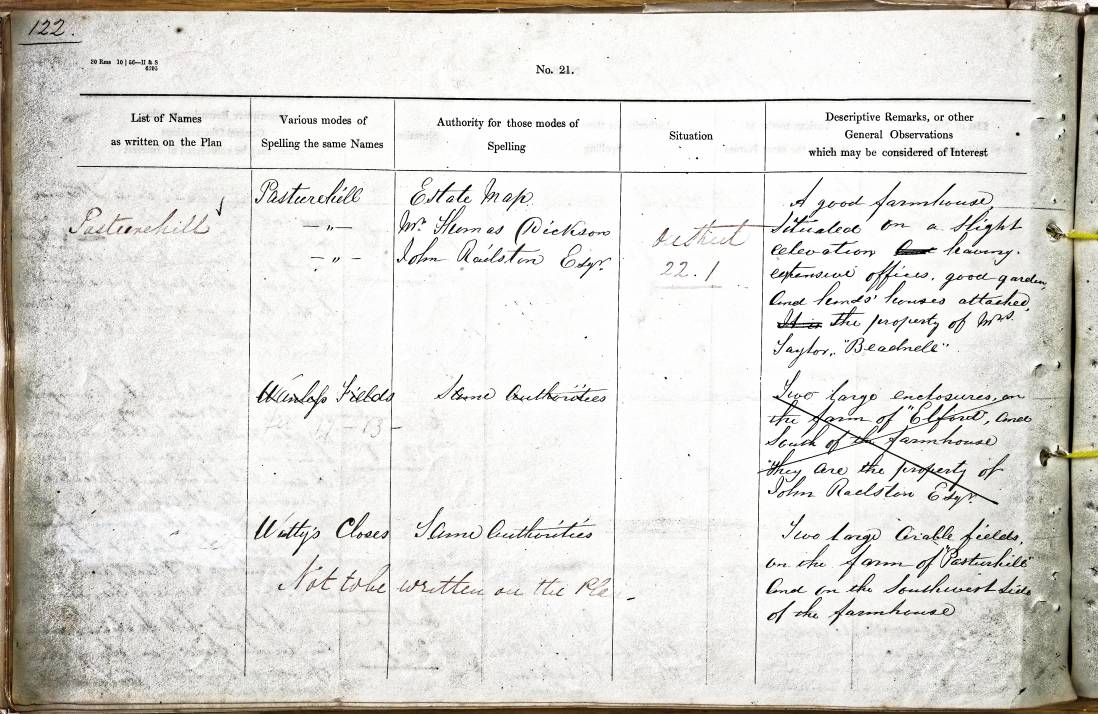 122.
20 Rms 10 | 56—H & S
6205
No. 21.
List of Names
as written on the Plan
Various modes of
Spelling the same Names
Authority for those modes of
Spelling
Situation
Descriptive Remarks, or other
General Observations
which may be considered of Interest
Pasturehill
Pasturehill
— " —
— " —
Estate Map
Mr. Thomas Dickson
John Railston Esqr.
22.1
A good farmhouse,
situated on a slight
elevation having
extensive offices, good garden,
and hinds' houses attached,
It is the property of Mrs.
Taylor, "Beadnell".
Wanless Fields
Same Authorities
Two large enclosures, on
the farm of "Elford", and
South of the farmhouse
they are the property of
John Railston Esqr.
Watty's Closes
Same Authorities
Two large Arable fields,
on the farm of "Pasturhill"
and on the Southwest side
of the farmhouse
Not to be written on the Plan